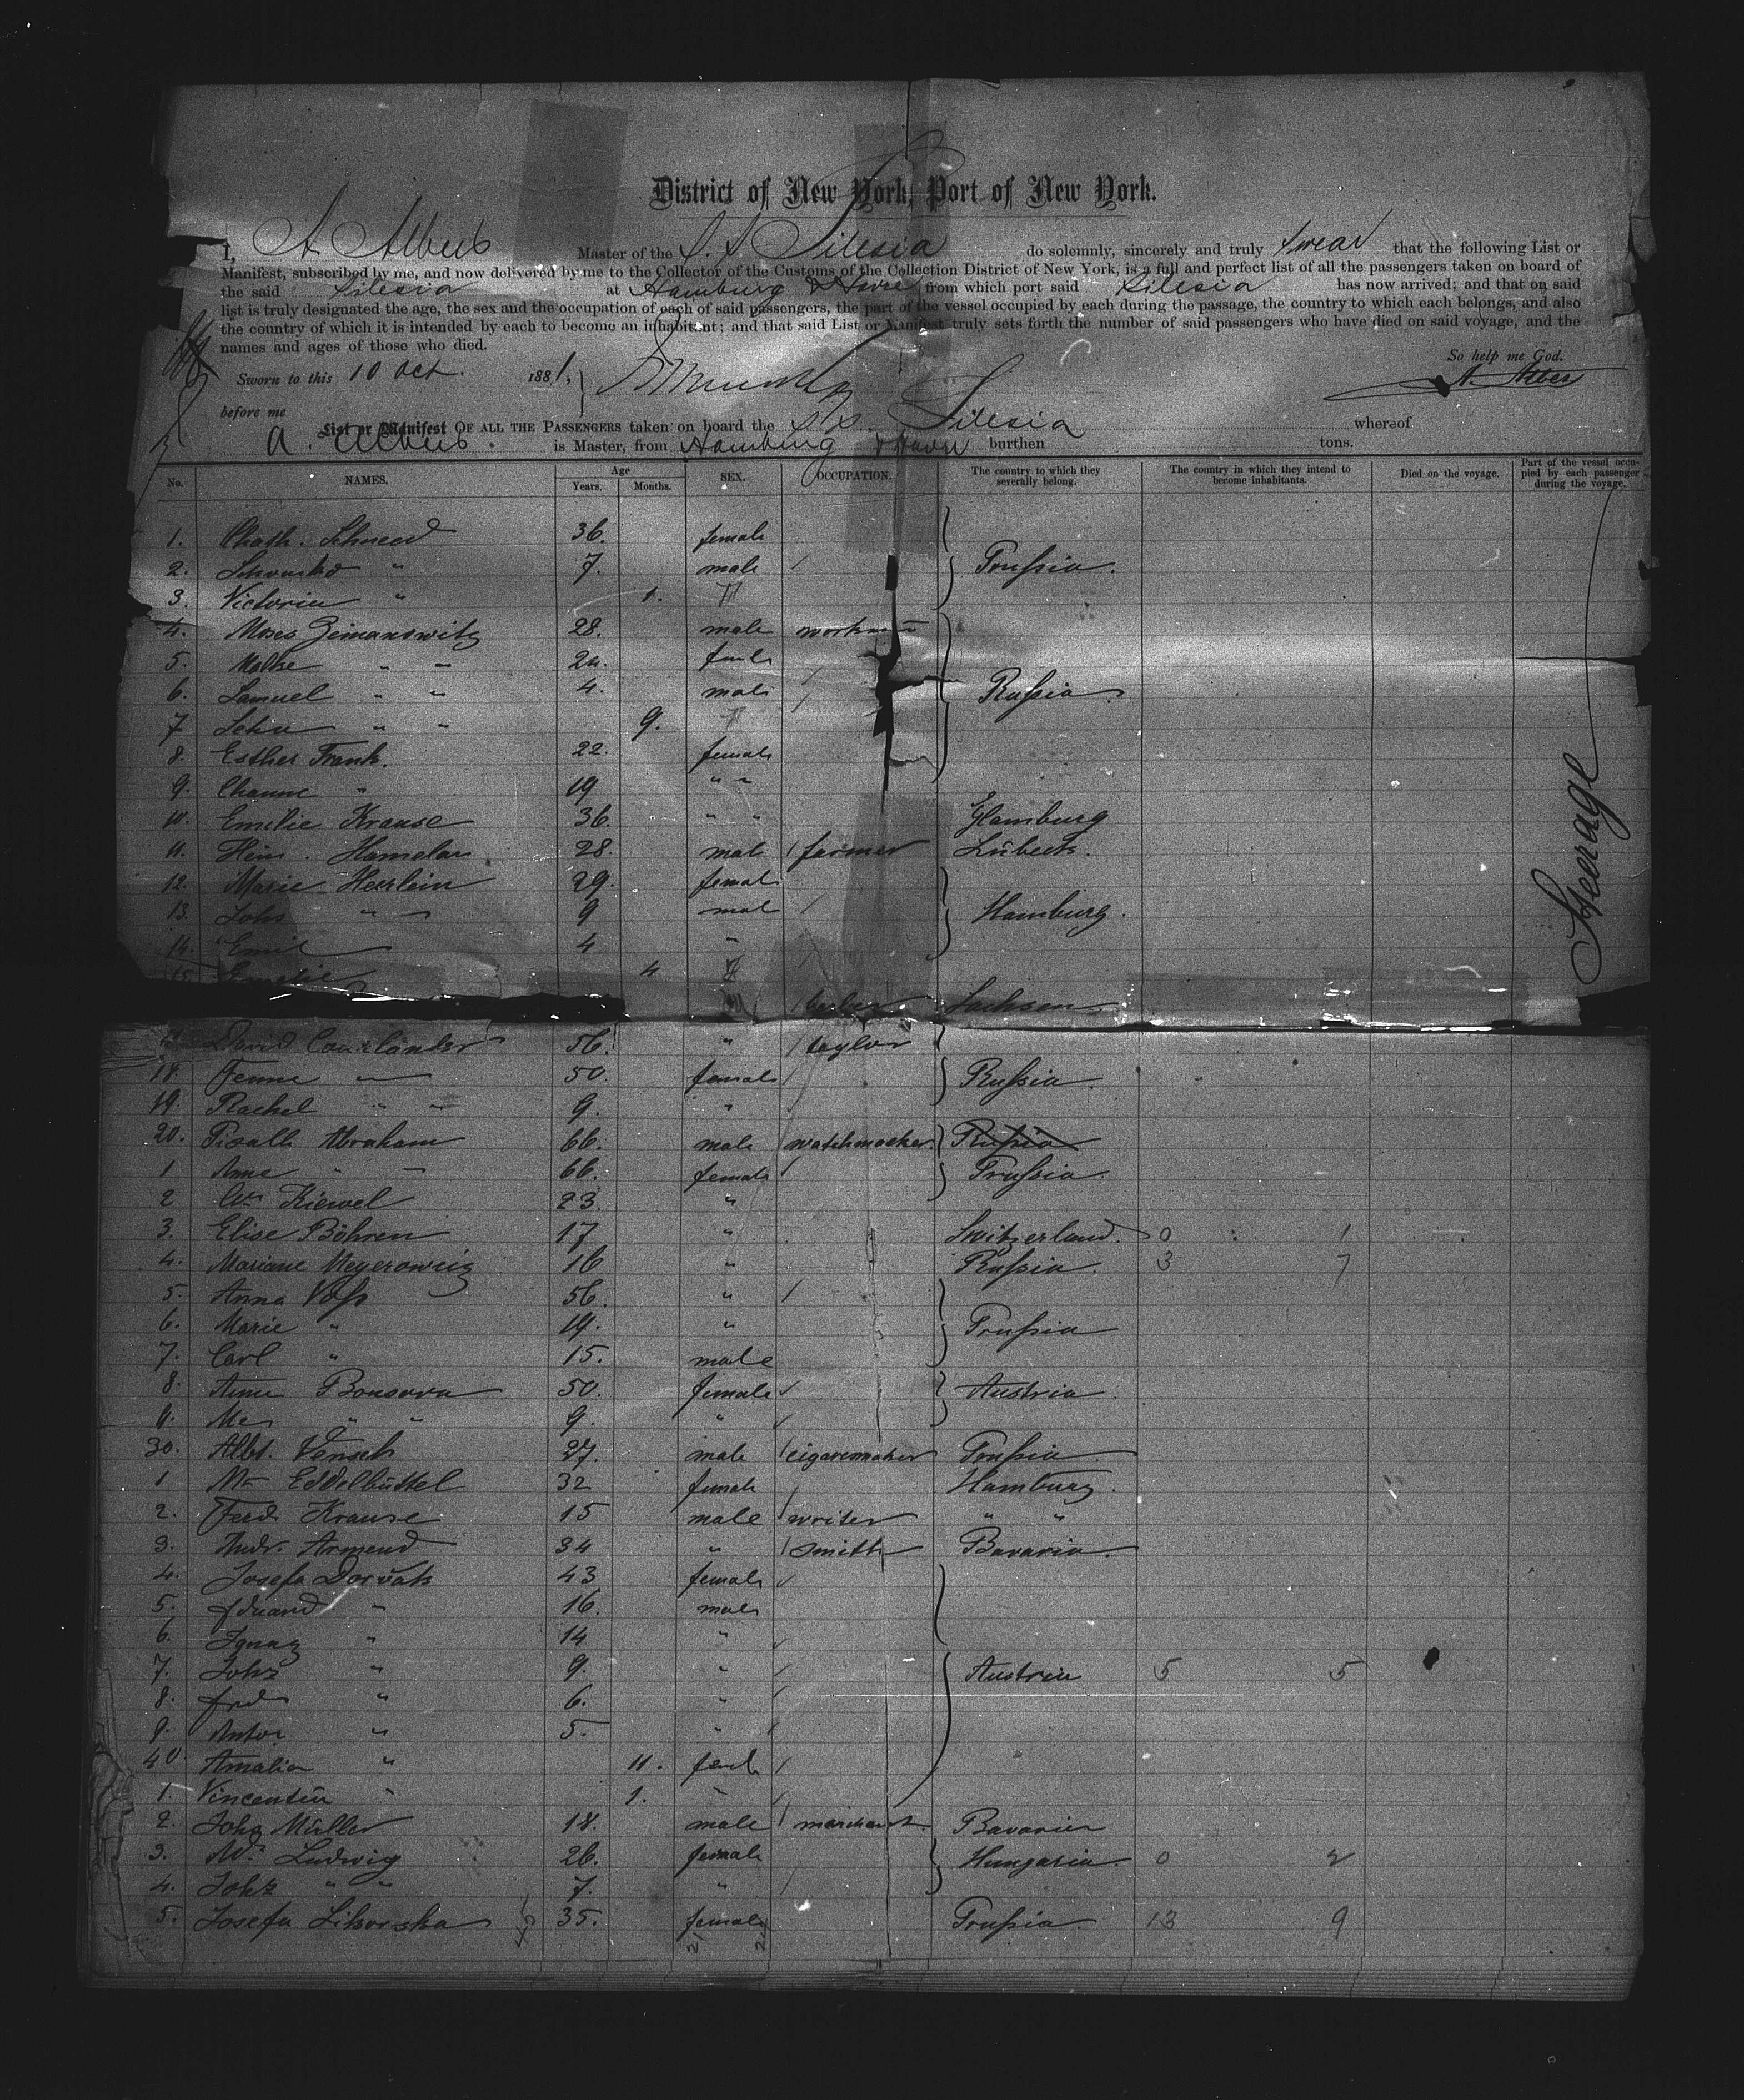 District of New York, Port of New York.
I, A Albers Master of the S. S Silesia do solemnly, sincerely and truly swear that the following List or
Manifest, subscribed by me, and now delivered by me to the Collector of the Customs of the Collection District of New York, is a full and perfect list of all the passengers taken on board of
the said Silesia at Hamburg & Havre from which port said Silesia has now arrived; and that on said
list is truly designated the age, the sex and the occupation of each of said passengers, the part of the vessel occupied by each during the passage, the country to which each belongs, and also
the country of which it is intended by each to become an inhabitant; and that said List or Manifest truly sets forth the number of said passengers who have died on said voyage, and the
names and ages of those who died.
So help me God.
Sworn to this 10 Oct. 1881, A. Albers
before me
List or Manifest OF ALL THE PASSENGERS taken on board the S.S. Silesia whereof
A. Albers. is Master, from Hamburg & Havre burthen tons.
No. NAMES. Age Years. Months. SEX. OCCUPATION. The country to which they severally belong. The country in which they intend to become inhabitants. Died on the voyage. Part of the vessel occupied by each passenger during the voyage.
1. 36. female
2. " 7. male Prussia.
3. Victoria " 1.
4. Moses Zeimanowitz 28. male workman
5. Malke " " 24. female
6. Samuel " " 4. male Russia
7 " " 9.
8. Esther Frank. 22. female
9. Channe " 19 " "
10. Emilie Krause 36. " " Hamburg
11. Hein. Hamelau 28. male farmer Lübeck.
12. Marie Heerlein 29. female
13. Johs " " 9 male Hamburg.
14. Emil 4 "
15. Emelie 4
Sachsen
David Courländer 56. " taylor
18. Fenne " 50. female Russia.
19. Rachel " " 9. "
20. Abraham 66. male watchmacker Russia
1 Anne " " 66. female Prussia.
2 Kiewel 23. "
3. Elise Böhren 17 " Switzerland. 0 1
4. Mariane Meyerowig 16 " Russia. 3 7
5. Anna Voss 56. "
6. Marie " 19. " Prussia
7. Carl " 15. male
8. Anna Bousova 50. female Austria.
9. " " 9. "
30. Albt. Wensch 27. male cigaremaker Prussia
1 Eddelbüttel 32 female Hamburg.
2. Ferd. Krause 15 male writer " "
3. Andr. Armend 34 " smith Bavaria.
4. Josefa Dorvak 43 female
5. Eduard " 16. male
6. Ignaz " 14 "
7. Johs " 9. " Austria 5 5
8. " 6. "
9. Anton " 5. "
40. Amalia " 11. female
1. Vincentin " 1. "
2. Johs Müller 18. male marchant. Bavaria
3. Ludwig 26. female Hungaria. 0 2
4. Johs " " 7. "
5. Josefa Sikorska 35. female Prussia. 13 9
45
Steerage